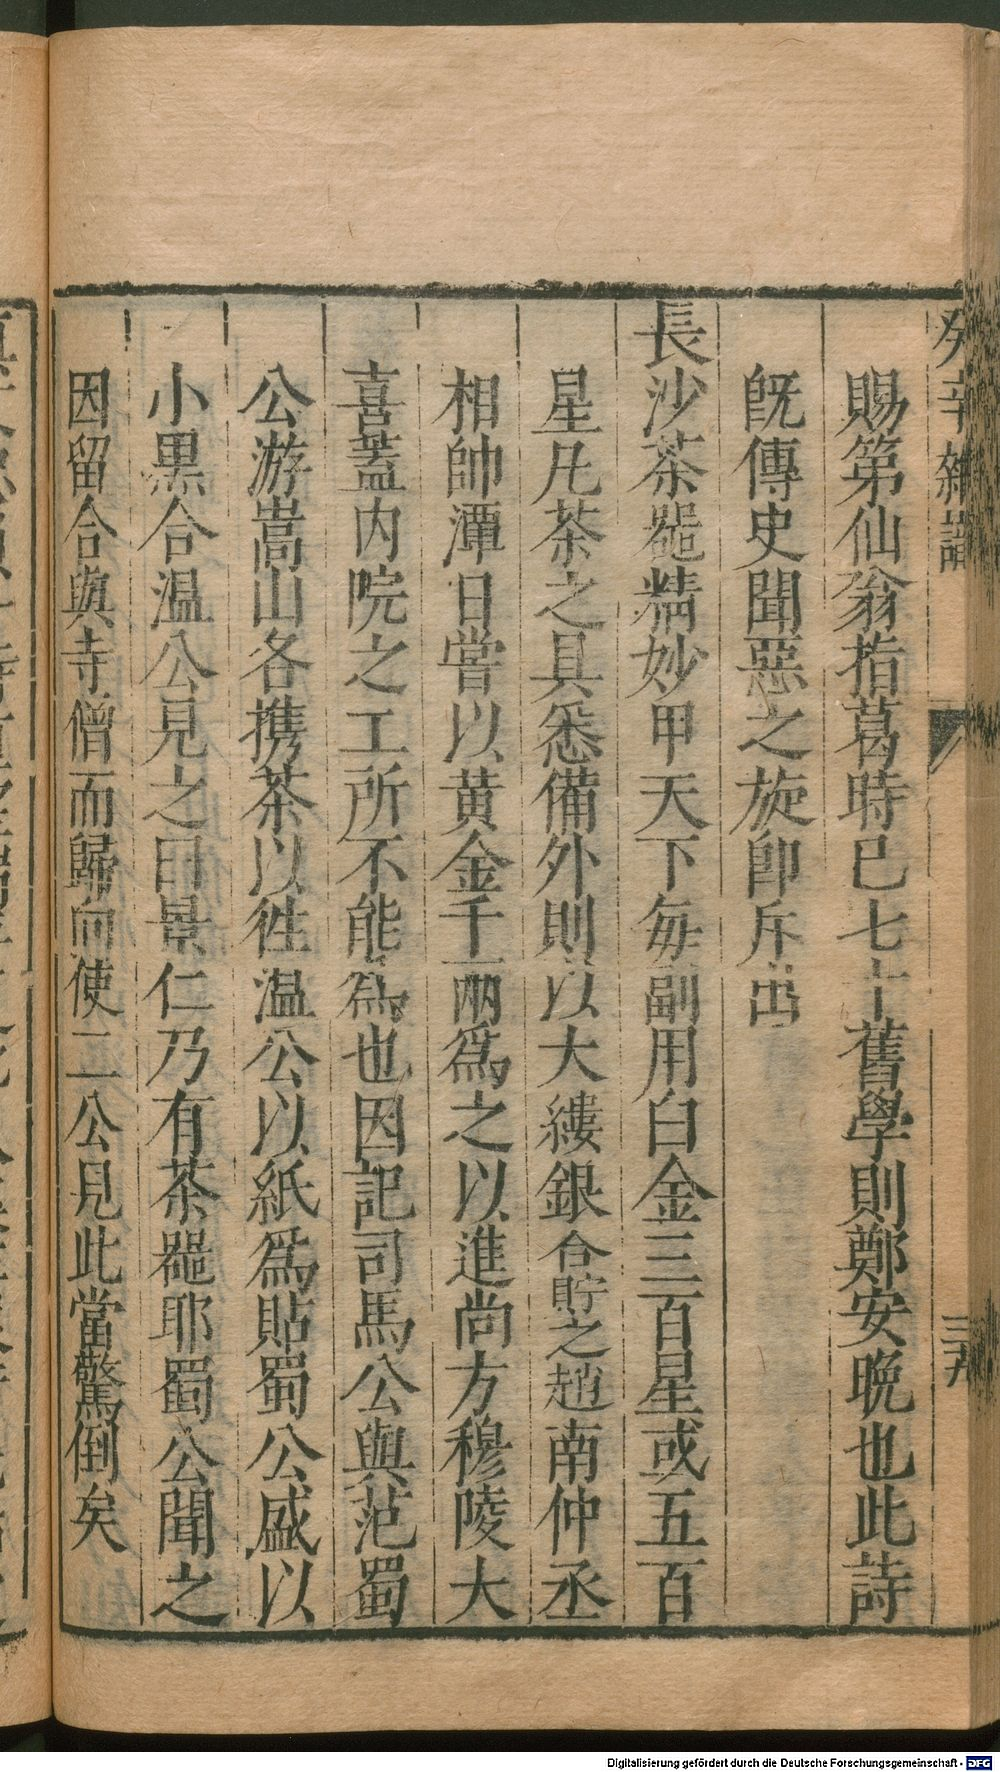 癸辛雜識
三十九
賜第仙翁指葛時已七十舊學則鄭安晩也此詩
旣傳史聞惡之旋卽斥出
長沙茶噐精妙甲天下每副用白金三百星或五百
星凡茶之具悉備外則以大縷銀合貯之趙南仲丞
相帥潭日嘗以黃金千兩爲之以進尚方穆陵大
喜蓋内院之工所不能為也因記司馬公與范蜀
公游嵩山各携茶以徃温公以紙爲貼蜀公盛以
小黒合温公見之曰景仁乃有茶噐耶蜀公聞之
因留合與寺僧而歸向使二公見此當驚倒矣
Digitalisierung gefördert durch die Deutsche Forschungsgemeinschaft - DFG